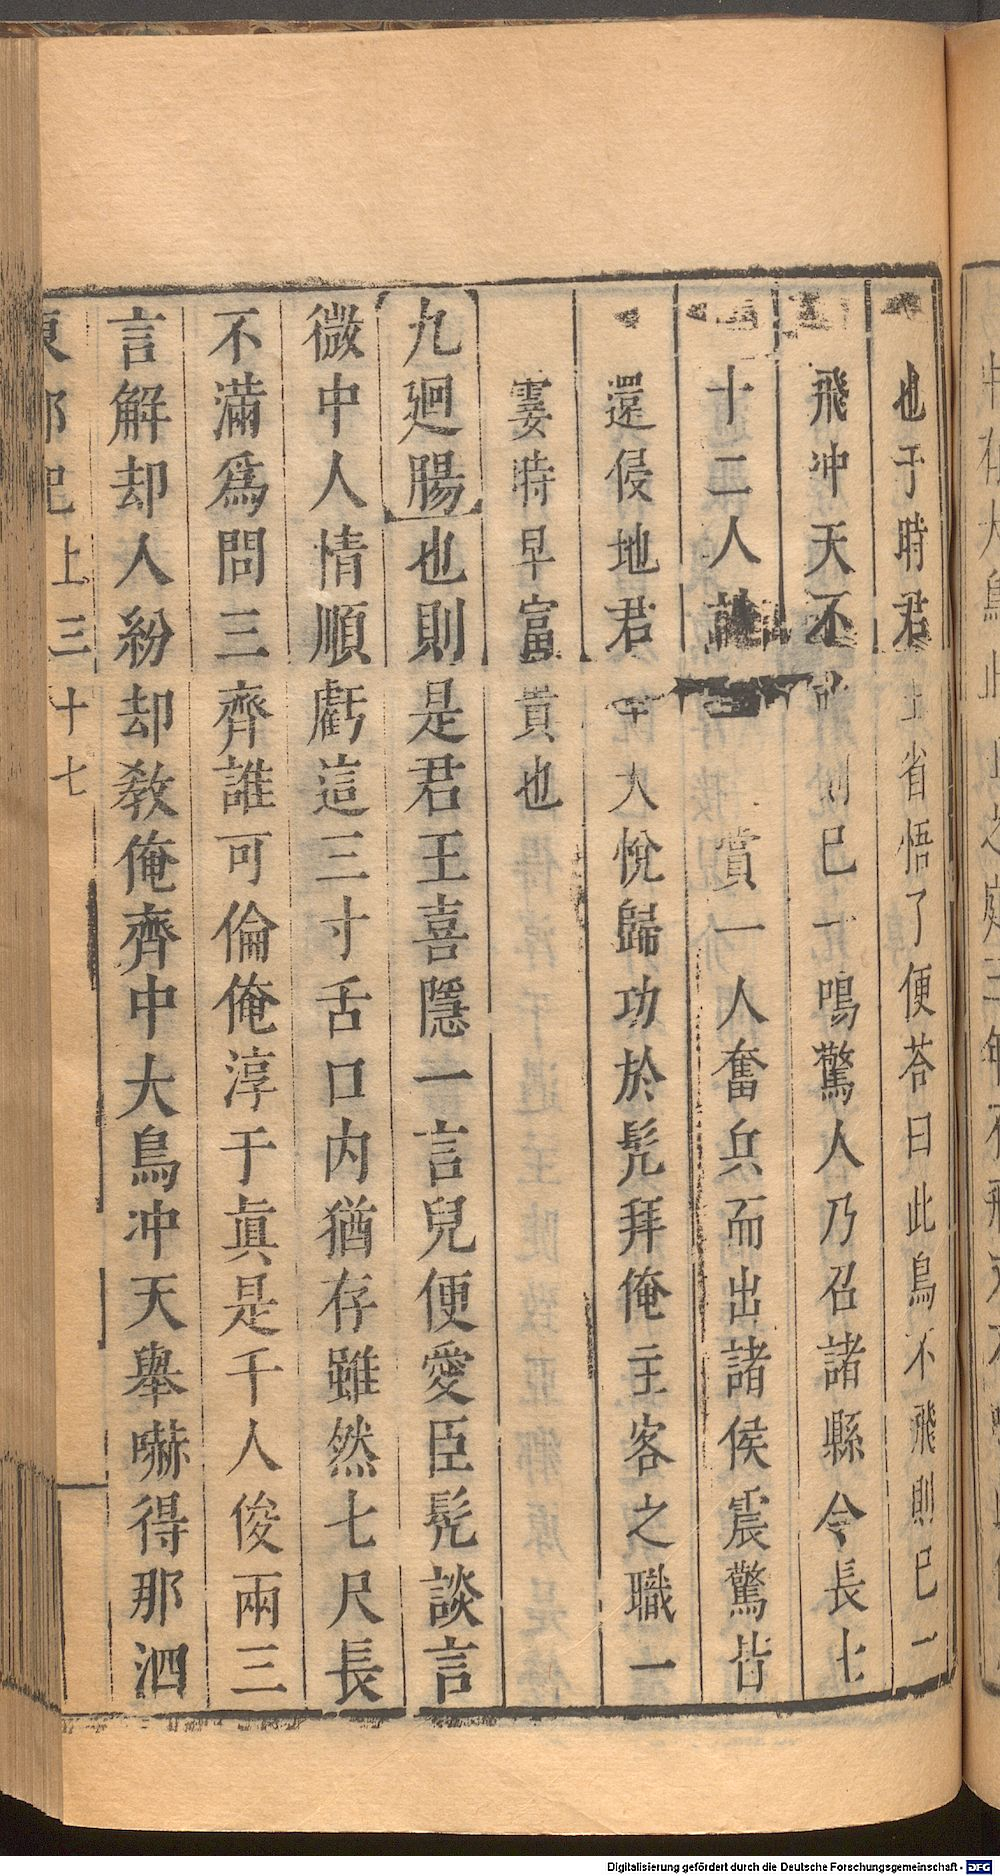 也于時君王省悟了便荅曰此鳥不飛則已一
飛冲天不鳴則已一鳴驚人乃召諸縣令長七
十二人 賞一人奮兵而出諸侯震驚皆
還侵地君王大悅歸功於髠拜俺主客之職一
霎時早富貴也
九廻腸也則是君王喜隱一言兒便愛臣髠談言
微中人情順虧這三寸舌口内猶存雖然七尺長
不滿爲問三齊誰可倫俺淳于眞是千人俊兩三
言解却人紛却敎俺齊中大鳥冲天舉嚇得那泗
東郭記上三十七
Digitalisierung gefördert durch die Deutsche Forschungsgemeinschaft - DFG